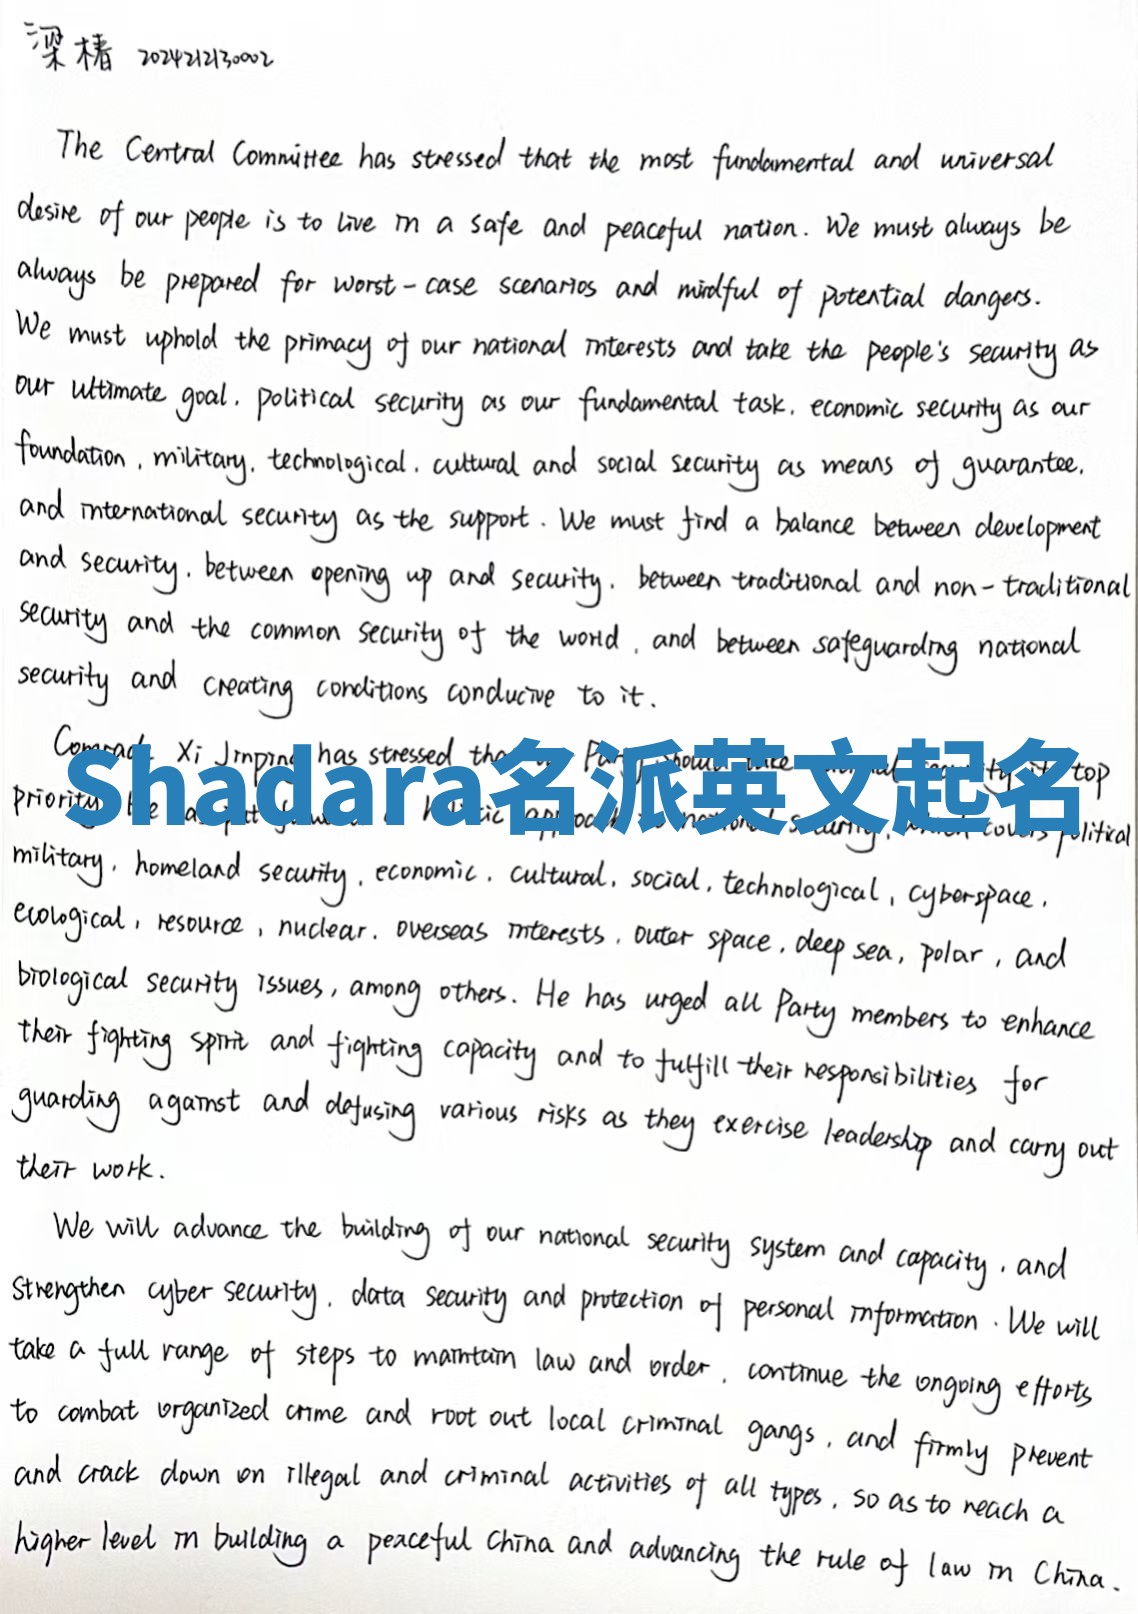 梁椿 2024212130002
The Central Committee has stressed that the most fundamental and universal
desire of our people is to live in a safe and peaceful nation. We must always be
always be prepared for worst-case scenarios and mindful of potential dangers.
We must uphold the primacy of our national interests and take the people's security as
our ultimate goal, political security as our fundamental task, economic security as our
foundation, military, technological, cultural and social security as means of guarantee,
and international security as the support. We must find a balance between development
and security, between opening up and security, between traditional and non-traditional
security and the common security of the world, and between safeguarding national
security and creating conditions conducive to it.
Xi Jinping has stressed Party top
priority political
Shadara名派英文起名
military, homeland security, economic, cultural, social, technological, cyberspace,
ecological, resource, nuclear, overseas interests, outer space, deep sea, polar, and
biological security issues, among others. He has urged all Party members to enhance
their fighting spirit and fighting capacity and to fulfill their responsibilities for
guarding against and defusing various risks as they exercise leadership and carry out
their work.
We will advance the building of our national security system and capacity, and
strengthen cyber security, data security and protection of personal information. We will
take a full range of steps to maintain law and order, continue the ongoing efforts
to combat organized crime and root out local criminal gangs, and firmly prevent
and crack down on illegal and criminal activities of all types, so as to reach a
higher level in building a peaceful China and advancing the rule of law in China.